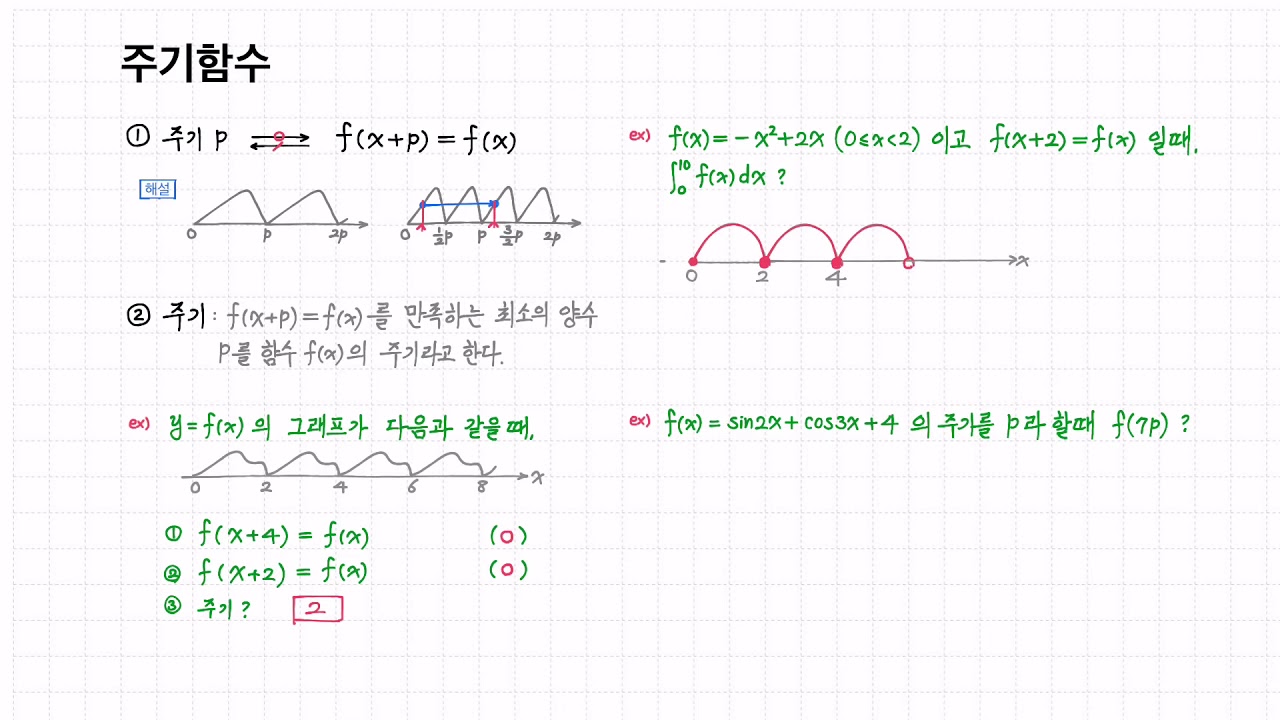 주기함수
① 주기 p ⇄ f(x+p) = f(x)
해설
0 p 2p
0 1/2p p 3/2p 2p
② 주기 : f(x+p) = f(x)를 만족하는 최소의 양수
p를 함수 f(x)의 주기라고 한다.
ex) y = f(x) 의 그래프가 다음과 같을때,
0 2 4 6 8 x
① f(x+4) = f(x) (O)
② f(x+2) = f(x) (O)
③ 주기? 2
ex) f(x) = -x²+2x (0≤x<2) 이고 f(x+2) = f(x) 일때,
∫₀¹⁰ f(x)dx ?
0 2 4 x
ex) f(x) = sin2x + cos3x + 4 의 주기를 p라 할때 f(7p) ?